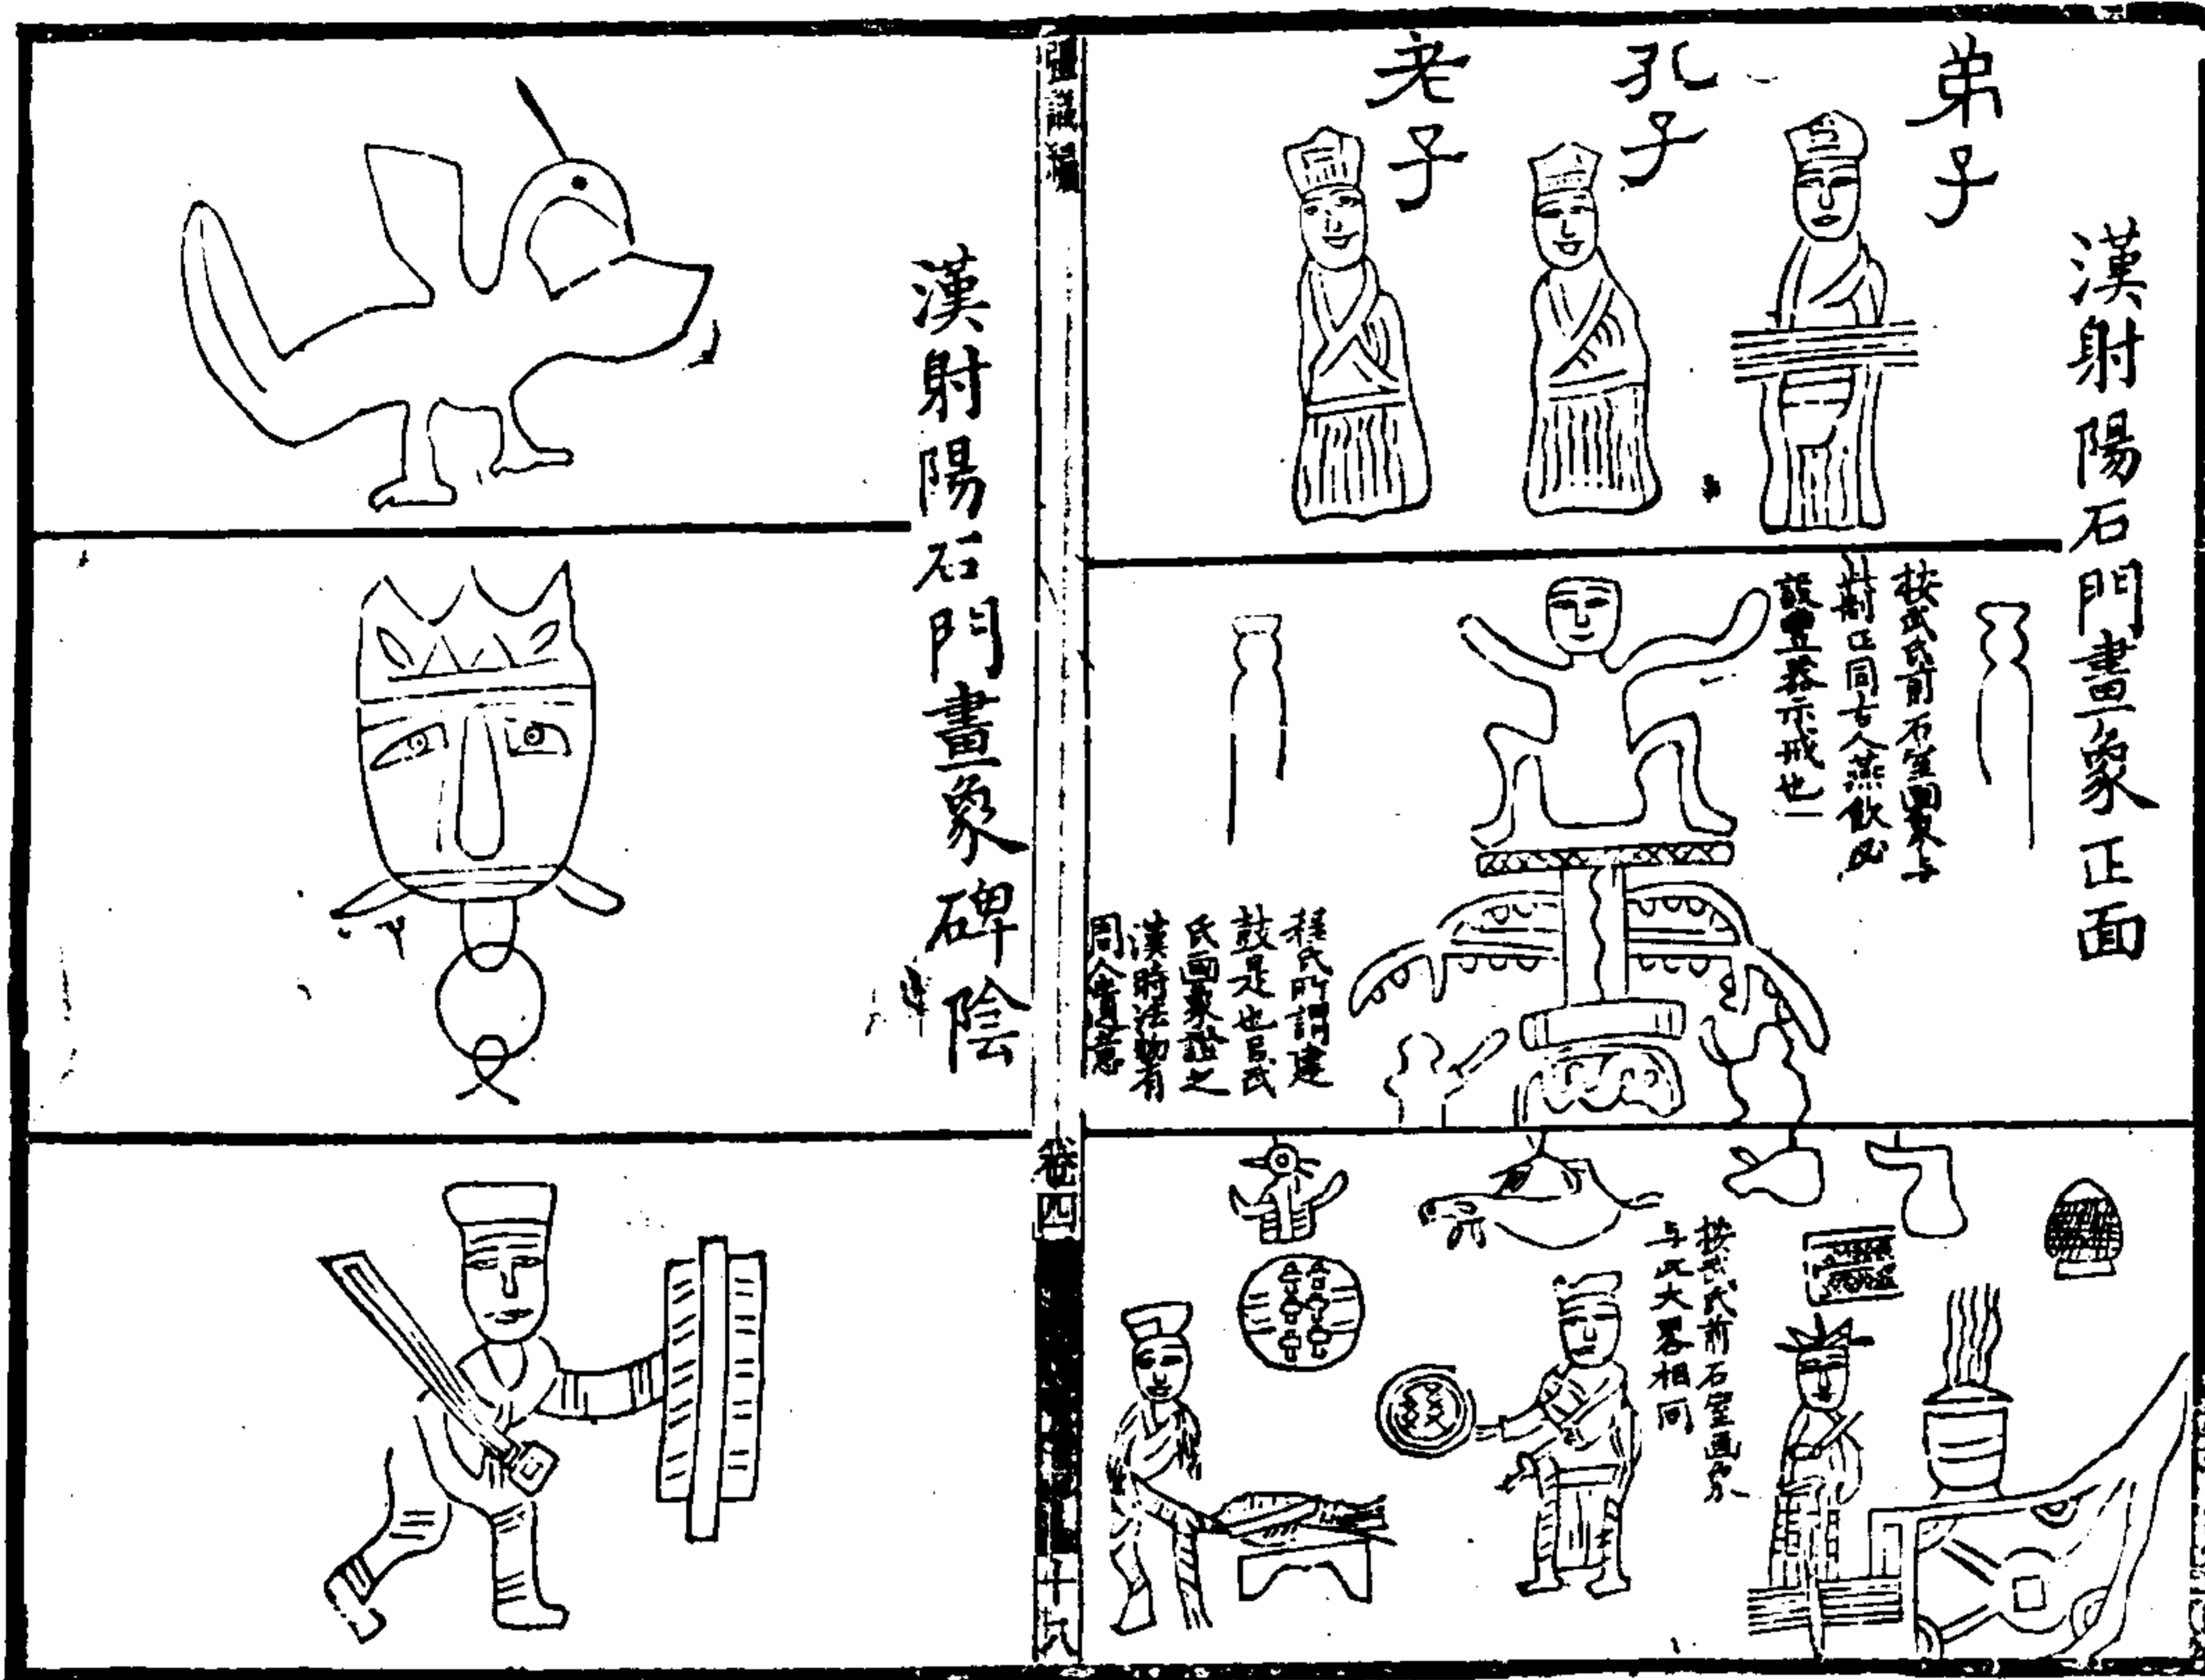 漢射陽石門畫象正面
弟子
孔子
老子
按武氏前石室畫象与
此同古人燕飲必
設豐器示戒也
程氏所謂建
鼓是也以武
氏畫象證之
漢時法物有
同
按武氏前石室画象
与此大畧相同
卷四
十六
漢射陽石門畫象碑陰